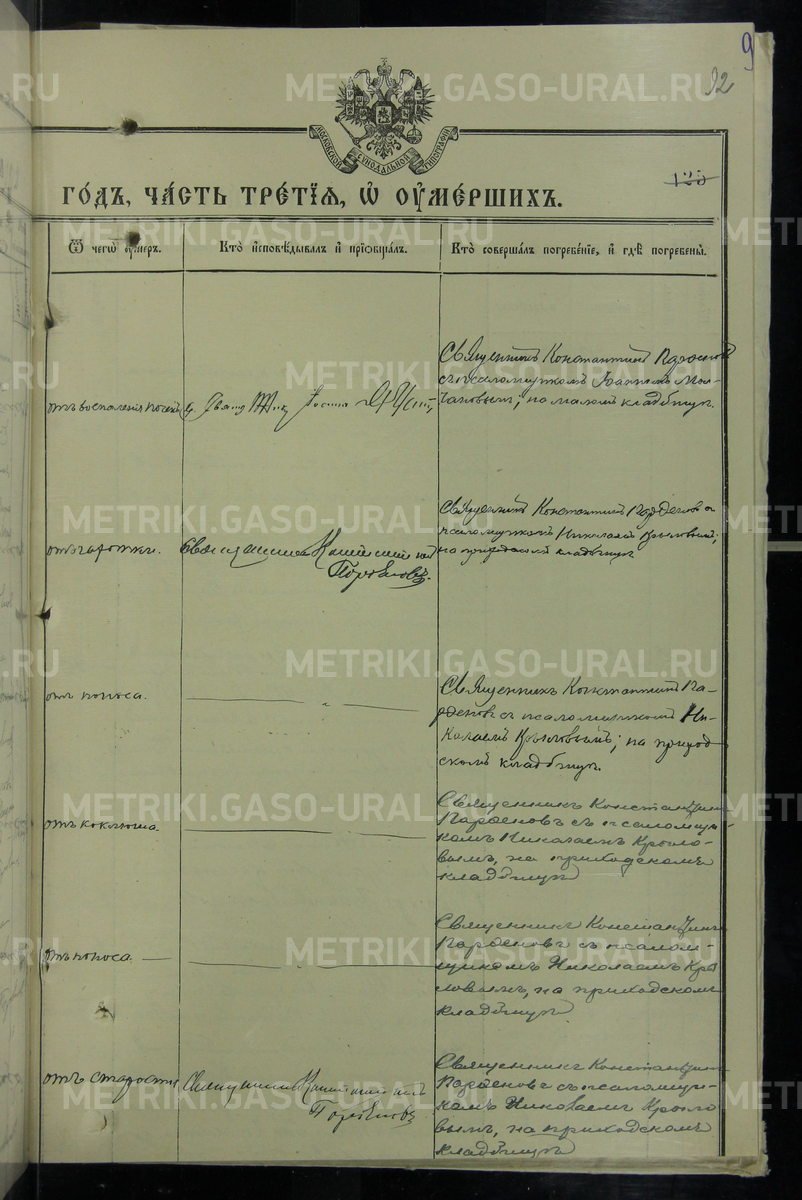 9
92
МОСКОВСКОЙ СѴНОДАЛЬНОЙ ТИПОГРАФІИ
123
ГО́ДЪ, ЧА́СТЬ ТРЕ́ТЇѦ, Ѽ ОУ҆МЕ́РШИХЪ.
Ѿ чегѡ̀ ᲂу҆́меръ.
Кто̀ и҆сповѣ́дывалъ и҆ прїѡбща́лъ.
Кто̀ соверша́лъ погребе́нїе, и҆ гдѣ̀ погребены̀.
отъ воспаленія почекъ
Священникъ Константинъ Парѳеновъ
съ псаломщикомъ Іоанномъ Мол-
чановымъ; на маломъ кладбищѣ.
отъ горячки.
Священникъ Константинъ
Парѳеновъ.
Священникъ Константинъ Парѳеновъ съ
псаломщикомъ Николаемъ Крыловымъ;
на приходскомъ кладбищѣ
отъ поноса.
Священникъ Константинъ Па-
рѳеновъ съ псаломщикомъ Ни-
колаемъ Крыловымъ; на приход-
скомъ кладбищѣ.
отъ коклюша.
Священникъ Константинъ
Парѳеновъ съ псаломщи-
комъ Николаемъ Крыло-
вымъ, на приходскомъ
кладбищѣ
отъ поноса.
Священникъ Константинъ
Парѳеновъ съ псалом-
щикомъ Николаемъ Кры-
ловымъ, на приходскомъ
кладбищѣ
отъ старости
Священникъ Константинъ
Парѳеновъ
Священникъ Константинъ
Парѳеновъ съ псаломщи-
комъ Николаемъ Крыло
вымъ, на приходскомъ
кладбищѣ
METRIKI.GASO-URAL.RU